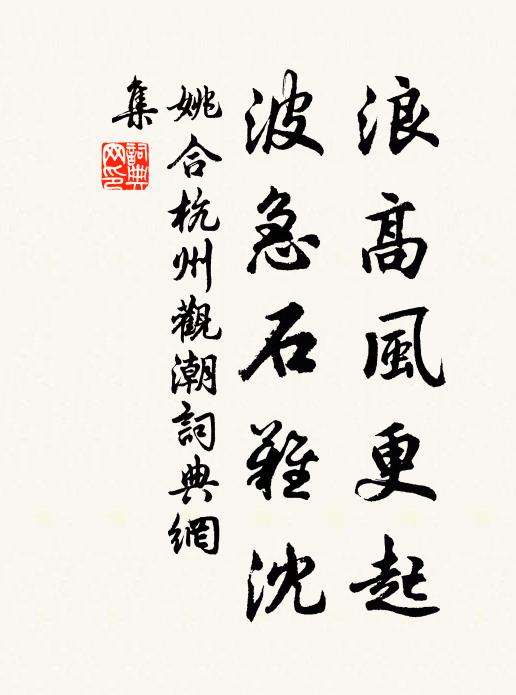 浪高風更起
波急石難沈
姚合杭州觀潮詞典網
集
詞典
网印